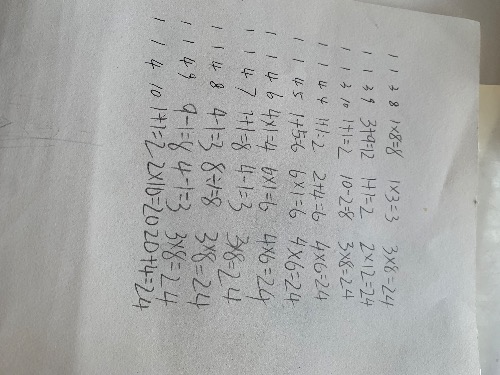 1 1 3 8 1×8=8 1×3=3 3×8=24
1 1 3 9 3+9=12 1+1=2 2×12=24
1 1 3 10 1+1=2 10-2=8 3×8=24
1 1 4 4 1+1=2 2+4=6 4×6=24
1 1 4 5 1+5=6 6×1=6 4×6=24
1 1 4 6 4×1=4 6×1=6 4×6=24
1 1 4 7 7+1=8 4-1=3 3×8=24
1 1 4 8 4-1=3 8÷1=8 3×8=24
1 1 4 9 9-1=8 4-1=3 3×8=24
1 1 4 10 1+1=2 2×10=20 20+4=24